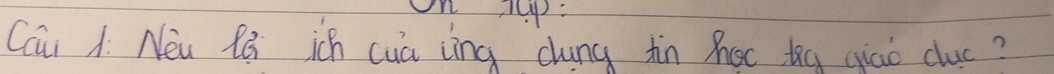 Ôn tập:
Câu 1: Nêu lợi ích của ứng dụng tin học trg giáo dục?